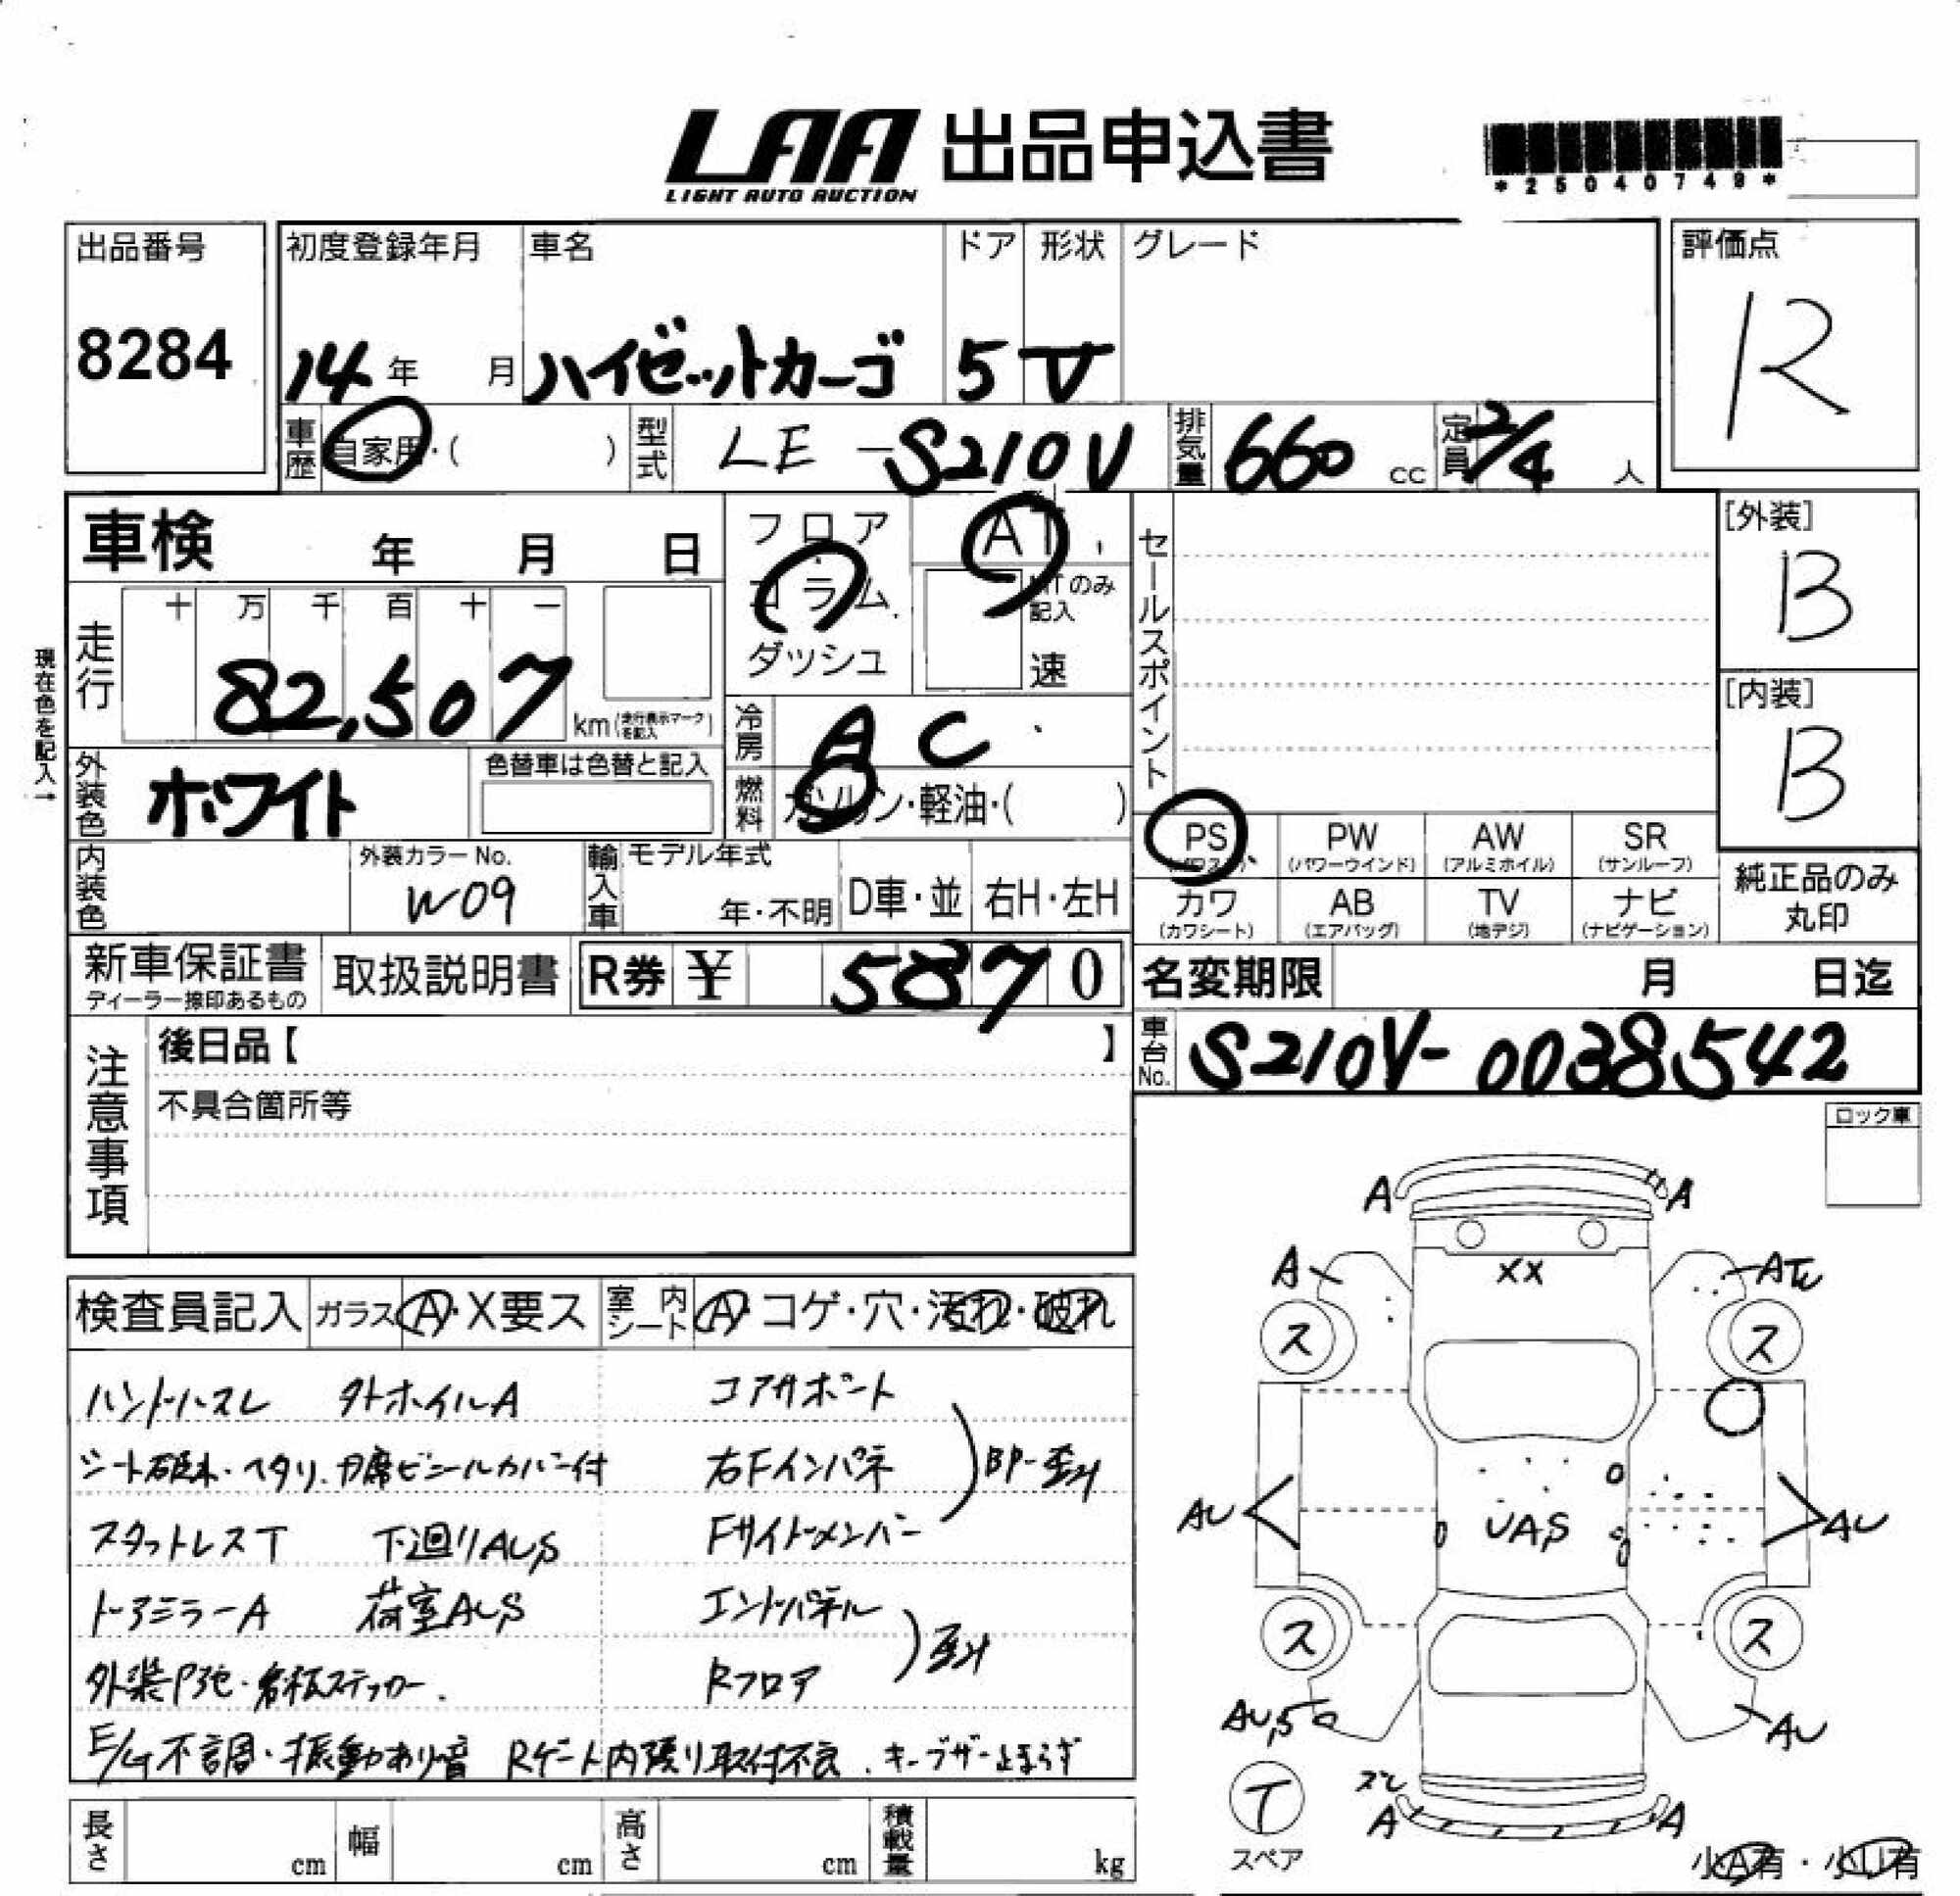 LAA 出品申込書
LIGHT AUTO AUCTION
*25040749*
出品番号 初度登録年月 車名 ドア 形状 グレード 評価点
8284 14年 月 ハイゼットカーゴ 5 V R
車歴 自家用・( ) 型式 LE-S210V 排気量 660 cc 定員 2/4 人
車検 年 月 日
フロア AT
コラム MTのみ記入
ダッシュ 速
セールスポイント
[外装] B
[内装] B
現在色を記入→
走行 十 万 千 百 十 一
82,507 km (走行表示マークを記入)
冷房 AC
燃料 ガソリン・軽油・( )
外装色 ホワイト 色替車は色替と記入
PS PW AW SR
(パワステ) (パワーウインド) (アルミホイル) (サンルーフ)
カワ AB TV ナビ
(カワシート) (エアバッグ) (地デジ) (ナビゲーション)
純正品のみ
丸印
内装色 外装カラーNo. W09 輸入車 モデル年式 年・不明 D車・並 右H・左H
新車保証書 取扱説明書 R券 ¥ 5870
ディーラー捺印あるもの
名変期限 月 日迄
車台No. S210V-0038542
注意事項
後日品【 】
不具合箇所等
ロック車
検査員記入 ガラス A・X要ス 室内シート A・コゲ・穴・汚れ・破れ
ハンドルスレ 外ホイルA コアサポート
シート破れ・ヘタリ. 力席ビニールカバー付 右Fインパネ BP-歪み
スタットレスT 下廻りAUS Fサイドメンバー
ドアミラーA 荷室AUS エンドパネル
外装P色・看板ステッカー. Rフロア 歪み
E/G不調・振動あり音 Rゲート内張り取付不良. キーブザー止まらず
長さ cm 幅 cm 高さ cm 積載量 kg
A A
A XX A
ス ス
AU UAS AU
ス ス
AUS AU
T
スペア
ズレ
A A
小A有・小U有